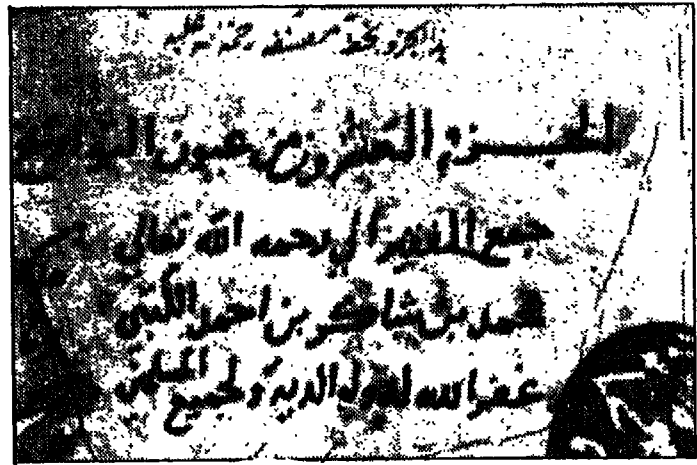 هذا الجزو بخط مصنفه رحمة الله عليه
الجزء العشرون من عيون التواريخ
جمع الفقير الي رحمه الله تعالى
محمد بن شاكر بن احمد الكتبي
غفر الله له ولوالديه ولجميع المسلمين